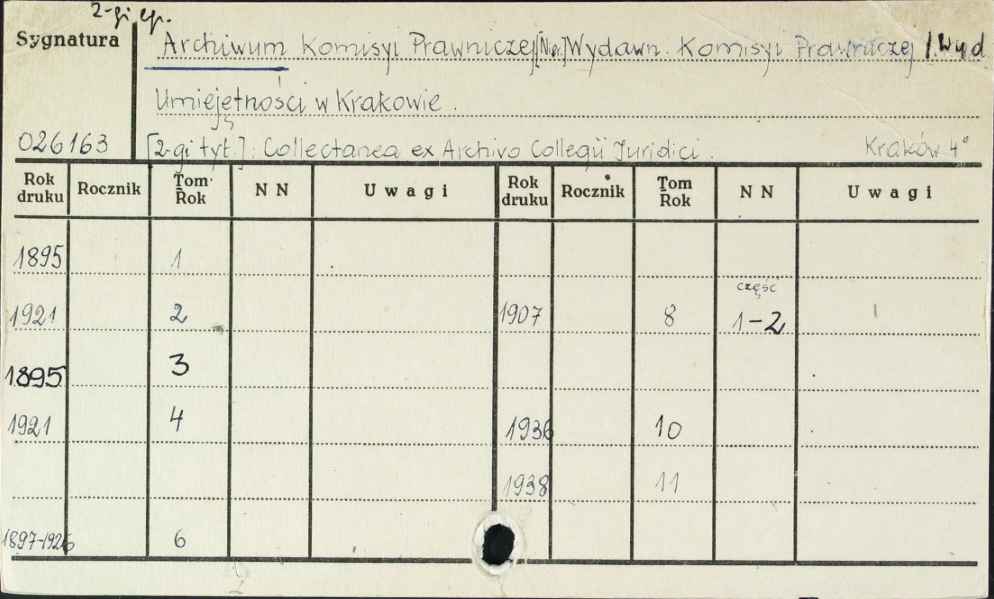 2-gi eg.
Sygnatura
Archiwum Komisyi Prawniczej Wydawn. Komisyi Prawniczej / Wyd
Umiejętności w Krakowie.
026163
[2-gi tyt.]: Collectanea ex Archivo Collegii Juridici. Kraków 4°
Rok druku Rocznik Tom Rok N N Uwagi Rok druku Rocznik Tom Rok N N Uwagi
1895 1
część
1921 2 1907 8 1-2
1895 3
1921 4 1936 10
1938 11
1897-1926 6